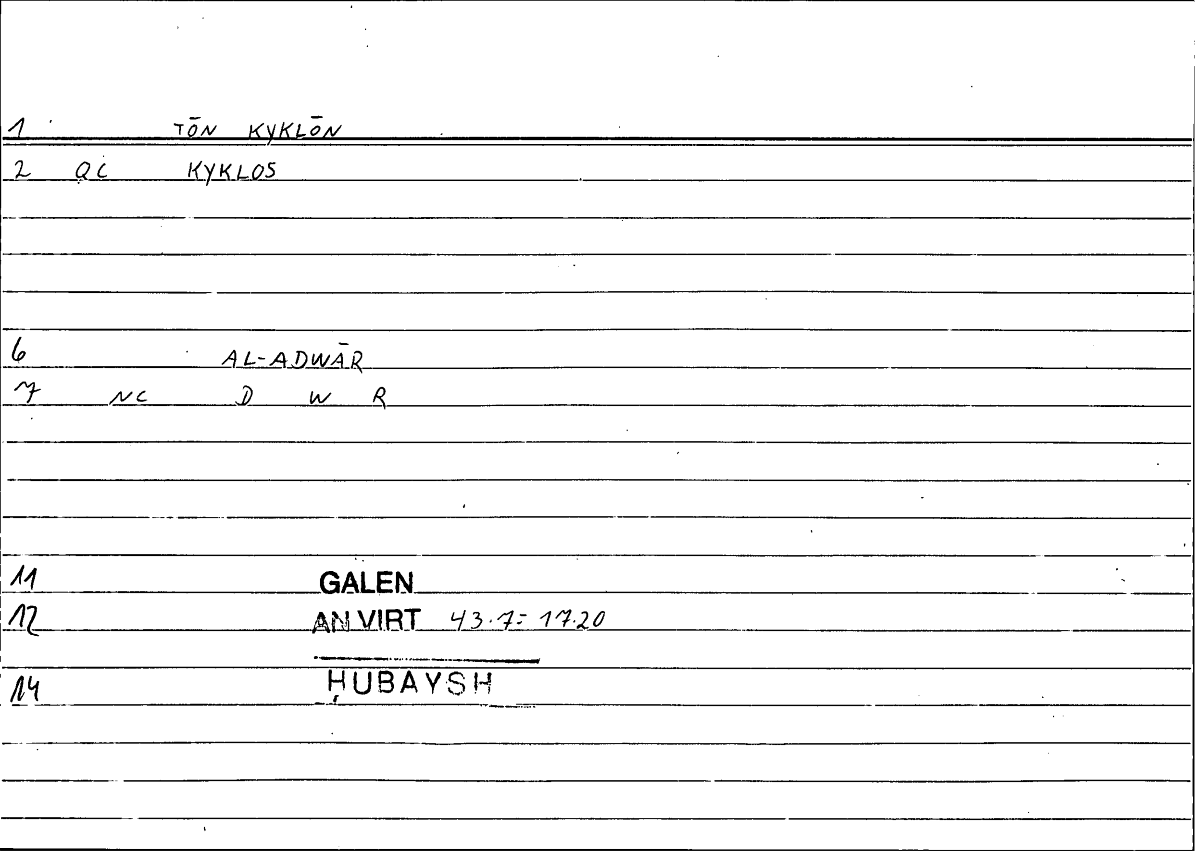 1 TŌN KYKLŌN
2 QC KYKLOS
6 AL-ADWĀR
7 NC D W R
11 GALEN
12 AN VIRT 43.7 = 17.20
14 ḤUBAYSH